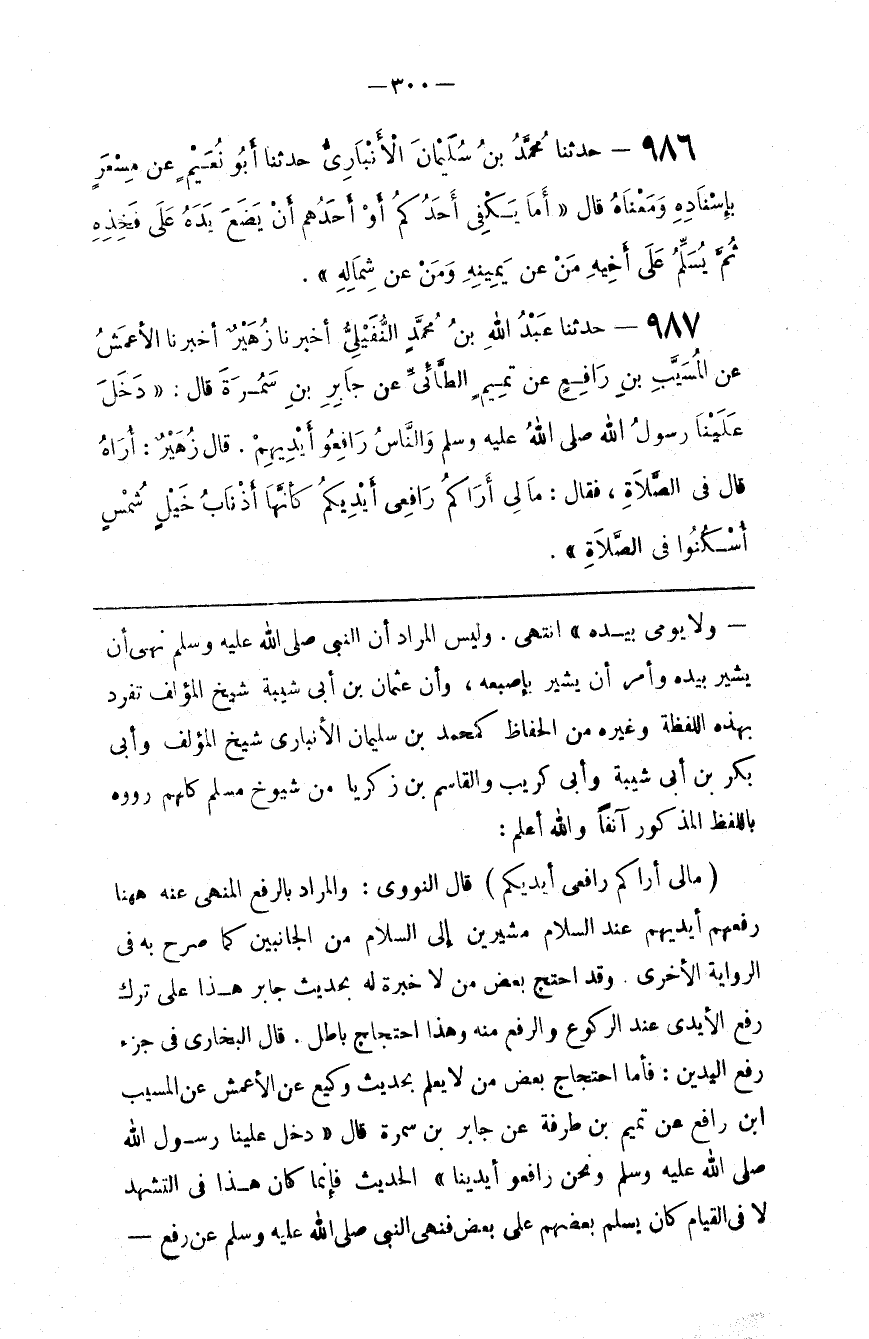 — ٣٠٠ —
٩٨٦ — حدثنا مُحمَّدُ بنُ سُلَيْمَانَ الْأَنْبَارِىُّ حدثنا أَبُو نُعَيْمٍ عن مِسْعَرٍ
بِإِسْنَادِهِ وَمَعْنَاهُ قال « أَمَا يَكْفِى أَحَدَكُمُ أَوْ أَحَدَهُم أَنْ يَضَعَ يَدَهُ عَلَى فَخِذِهِ
ثُمَّ يُسَلِّمُ عَلَى أَخِيهِ مَنْ عن يَمِينِهِ وَمَنْ عن شِمَالِهِ » .
٩٨٧ — حدثنا عَبْدُ اللهِ بنُ مُحمَّدٍ النُّفَيْلِىُّ أخبرنا زُهَيْرٌ أخبرنا الأعمَشُ
عن الْمُسَيَّبِ بنِ رَافِعٍ عن تَمِيمٍ الطَّائِىِّ عن جابِرِ بنِ سَمُرَةَ قال : « دَخَلَ
عَلَيْنَا رسولُ الله صلى اللهُ عليه وسلم وَالنَّاسُ رَافِعُو أَيْدِيهِمْ . قال زُهَيْرٌ : أُرَاهُ
قال فى الصَّلَاةِ ، فقال : مَا لِى أَرَاكُمْ رَافِعِى أَيْدِيكُمُ كَأَنَّهَا أَذْنَابُ خَيْلٍ شُمْسٍ
أُسْكُنُوا فى الصَّلَاةِ » .
— ولا يومى بيده » انتهى . وليس المراد أن النبى صلى الله عليه وسلم نهى أن
يشير بيده وأمر أن يشير بإصبعه ، وأن عثمان بن أبى شيبة شيخ المؤلف تفرد
بهذه اللفظة وغيره من الحفاظ كمحمد بن سليمان الأنبارى شيخ المؤلف وأبى
بكر بن أبى شيبة وأبى كريب والقاسم بن زكريا من شيوخ مسلم كلهم رووه
باللفظ المذكور آنفاً والله أعلم :
( مالى أراكم رافعى أيديكم ) قال النووى : والمراد بالرفع المنهى عنه ههنا
رفعهم أيديهم عند السلام مشيرين إلى السلام من الجانبين كما صرح به فى
الرواية الأخرى . وقد احتج بعض من لا خبرة له بحديث جابر هذا على ترك
رفع الأيدى عند الركوع والرفع منه وهذا احتجاج باطل . قال البخارى فى جزء
رفع اليدين : فأما احتجاج بعض من لا يعلم بحديث وكيع عن الأعمش عن المسيب
ابن رافع عن تميم بن طرفة عن جابر بن سمرة قال « دخل علينا رسول الله
صلى الله عليه وسلم ونحن رافعو أيدينا » الحديث فإنما كان هذا فى التشهد
لا فى القيام كان يسلم بعضهم على بعض فنهى النبى صلى الله عليه وسلم عن رفع —